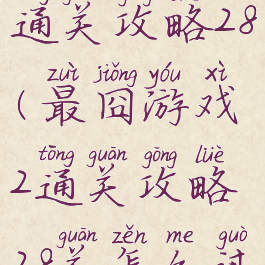 通关攻略28
zuì jiǒng yóu xì
(最囧游戏
tōng guān gōng lüè
2通关攻略
guān zěn me guò
28关怎么过